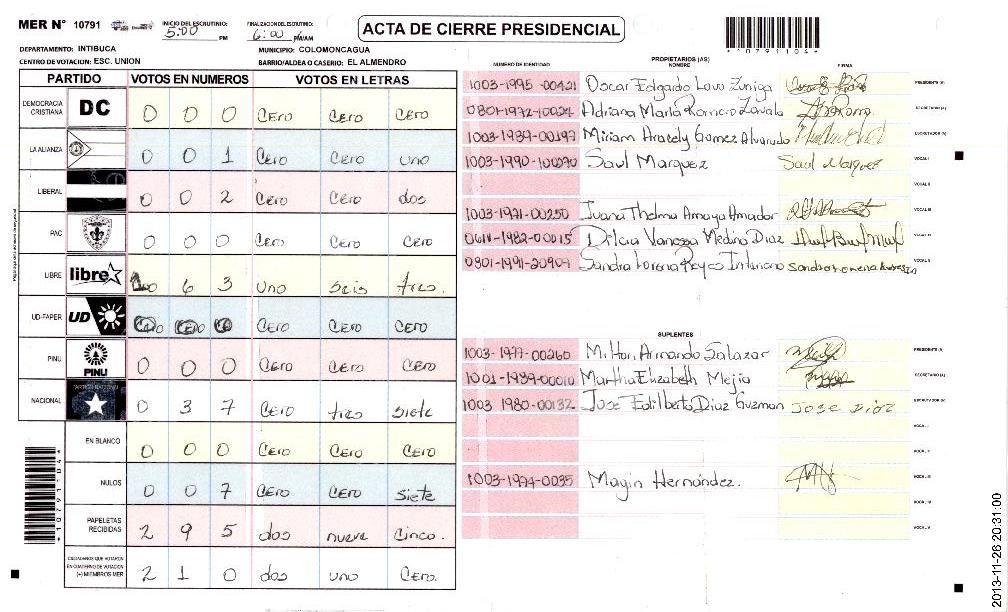 MER N° 10791
INICIO DEL ESCRUTINIO: 5:00 PM
FINALIZACION DEL ESCRUTINIO: 6:00 PM/AM
ACTA DE CIERRE PRESIDENCIAL
*10791104*
DEPARTAMENTO: INTIBUCA
MUNICIPIO: COLOMONCAGUA
CENTRO DE VOTACION: ESC. UNION
BARRIO/ALDEA O CASERIO: EL ALMENDRO
PARTIDO VOTOS EN NUMEROS VOTOS EN LETRAS
DEMOCRACIA CRISTIANA DC 0 0 0 Cero Cero Cero
LA ALIANZA 0 0 1 Cero Cero uno
LIBERAL 0 0 2 Cero Cero dos
PAC 0 0 0 Cero Cero Cero
LIBRE libre 6 3 uno seis tres.
UD-FAPER UD Cero Cero Cero
PINU PINU 0 0 0 Cero Cero Cero
NACIONAL PARTIDO NACIONAL 0 3 7 Cero tres siete
EN BLANCO 0 0 0 Cero Cero Cero
NULOS 0 0 7 Cero Cero siete
PAPELETAS RECIBIDAS 2 9 5 dos nueve Cinco.
CIUDADANOS QUE VOTARON EN CUADERNO DE VOTACION (+) MIEMBROS MER 2 1 0 dos uno Cero.
*10791104*
PROPIETARIOS (AS)
NUMERO DE IDENTIDAD NOMBRE FIRMA
1003-1995-00421 Oscar Edgardo Lovo Zuniga PRESIDENTE (A)
0801-1972-10024 Adriana Maria Romero Zavala SECRETARIO (A)
1003-1989-00197 Miriam Aracely Gomez Alvarado ESCRUTADOR (A)
1003-1990-100090 Saul Marquez Saul Marquez VOCAL I
VOCAL II
1003-1971-00250 Juana Thelma Amaya Amador VOCAL III
1982-00015 Dilcia Vanessa Medina Diaz VOCAL IV
0801-1991-20909 Sandra Lorena Reyes Interiano VOCAL V
SUPLENTES
1003-1977-00260 Milton Armando Salazar PRESIDENTE (A)
1001-1989-00010 Martha Elizabeth Mejia SECRETARIO (A)
1003 1980-00132 Jose Edilberto Diaz Guzman Jose Diaz ESCRUTADOR (A)
VOCAL I
VOCAL II
1003-1994-0035 Magin Hernández. VOCAL III
VOCAL IV
VOCAL V
2013-11-26 20:31:00